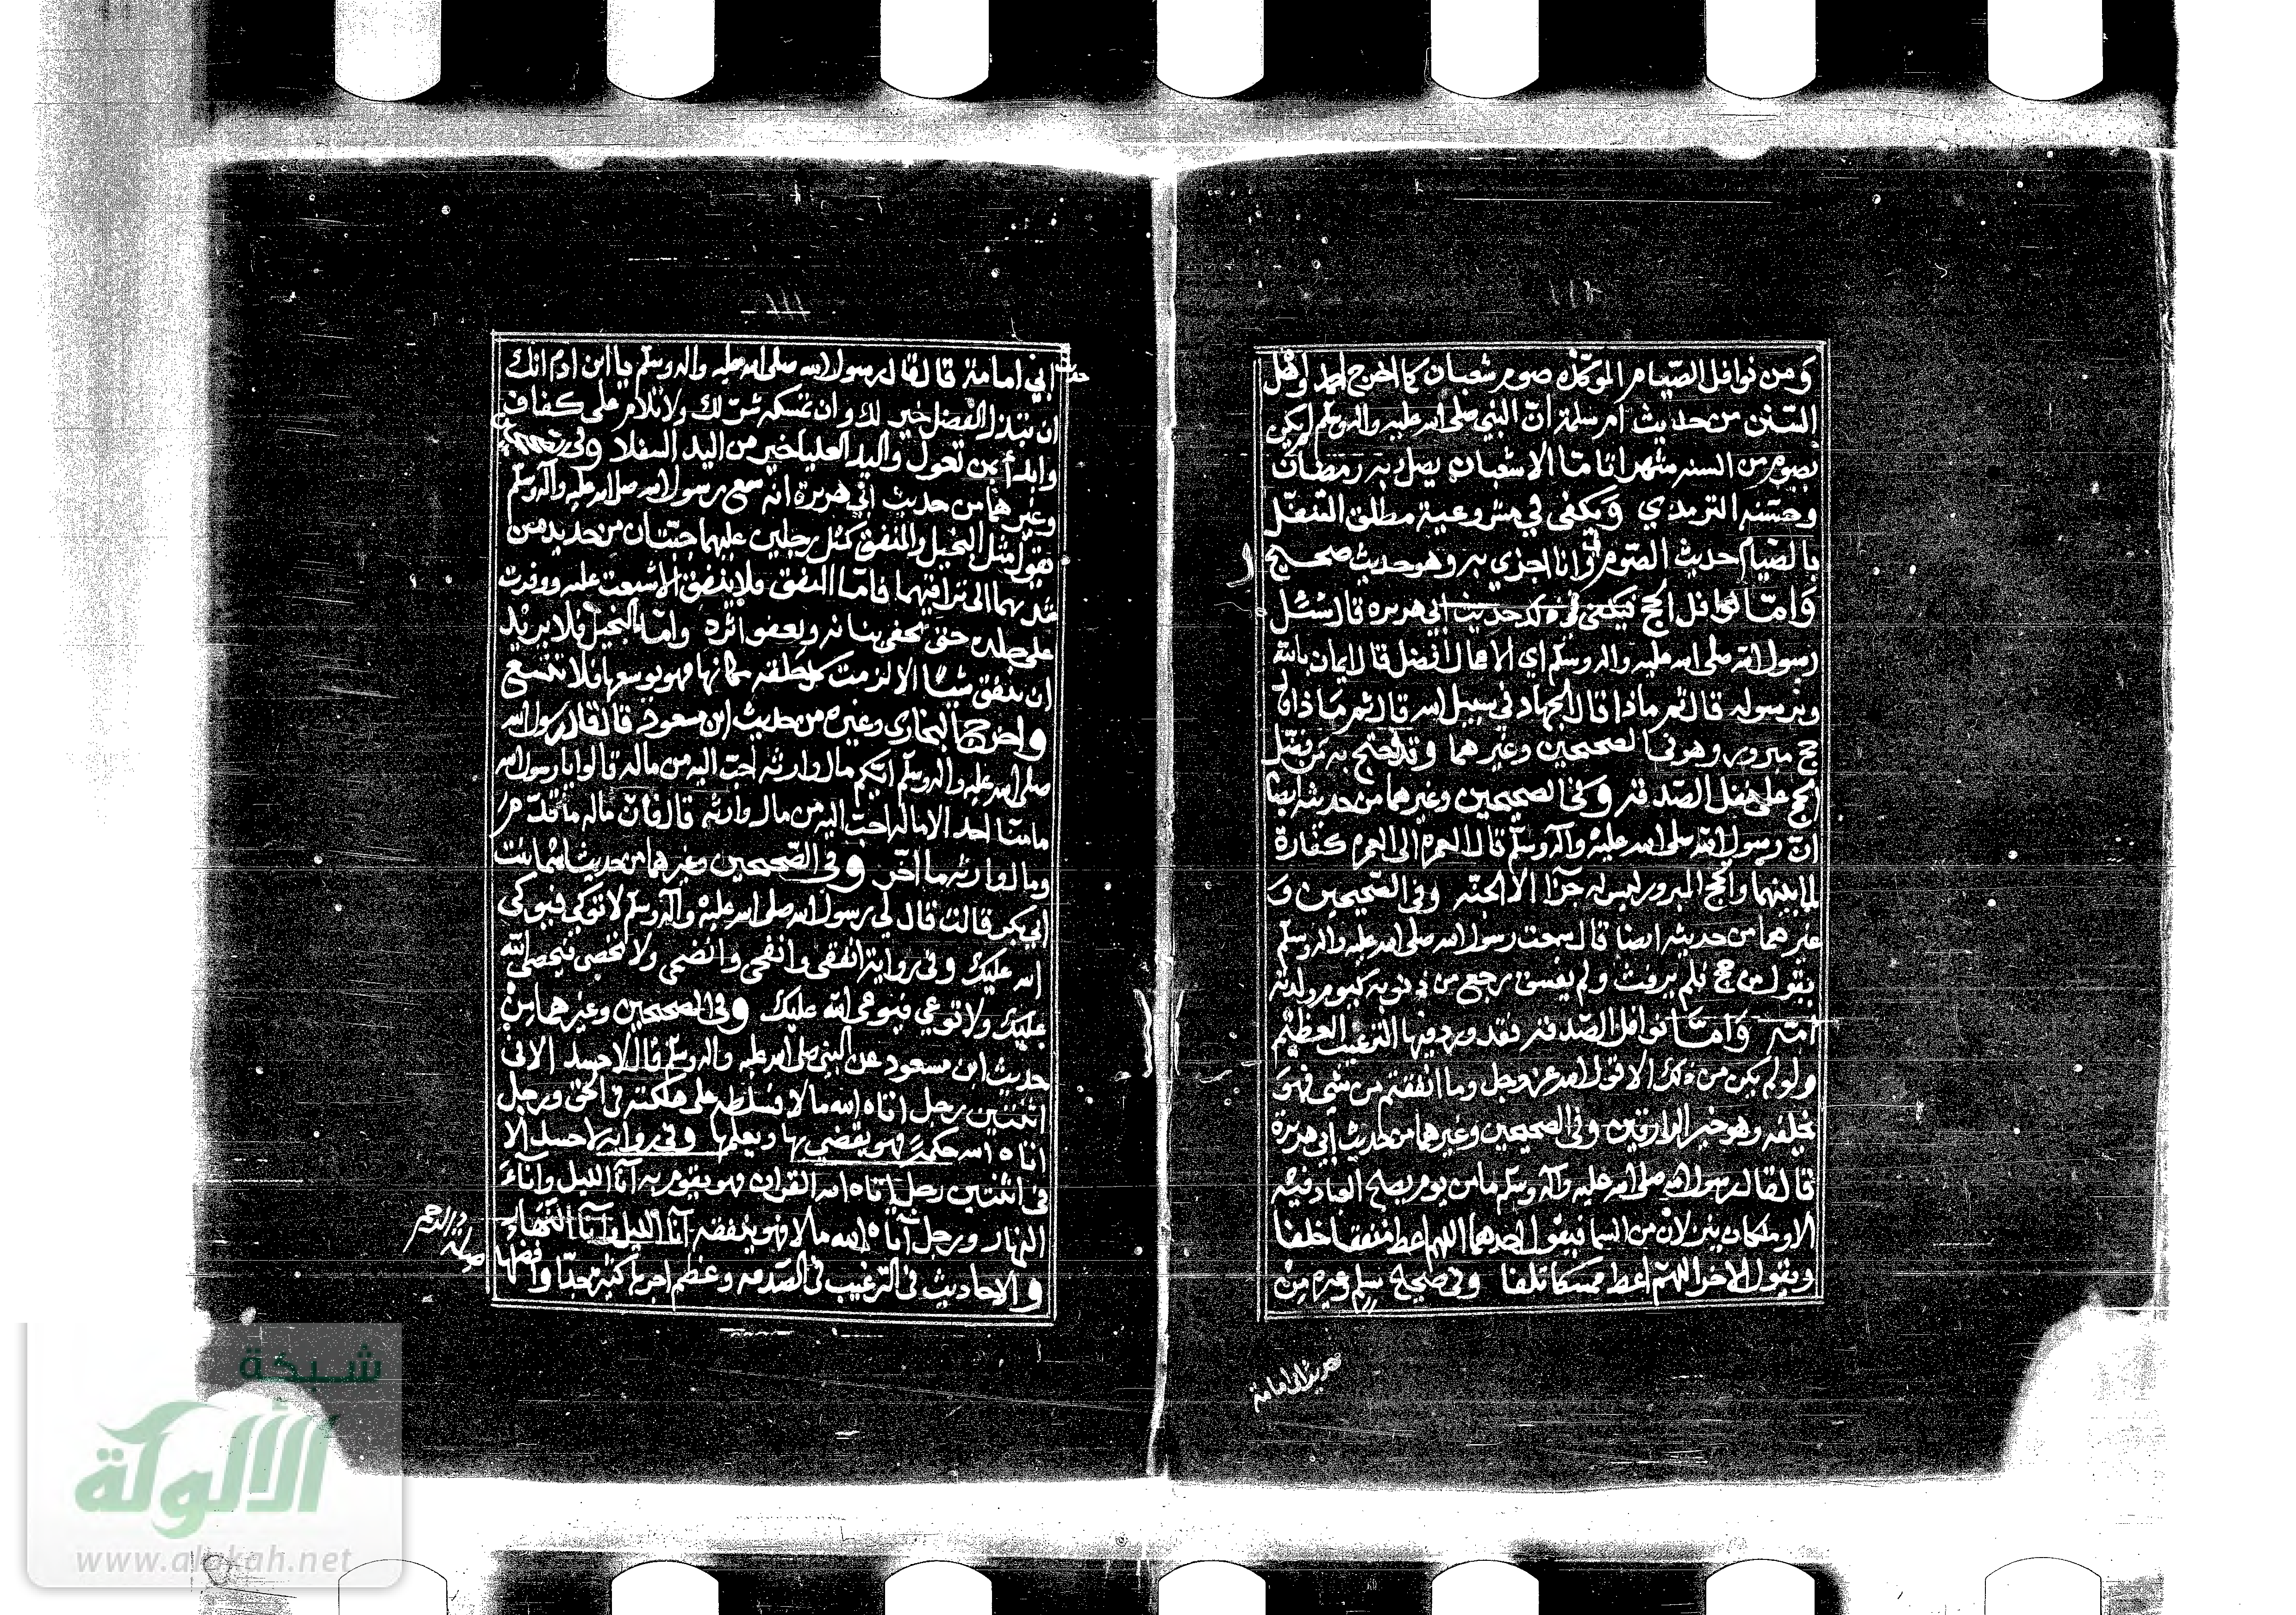 ومن نوافل الصيام المؤكده صوم شعبان كما اخرج احمد واهل
السنن من حديث ام سلمة ان النبي صلى الله عليه واله وسلم لم يكن
يصوم من السنه شهرا تاما الا شعبان يصل به رمضان
وحسنه الترمذي ويكفى في مشروعية مطلق التنفل
بالصيام حديث الصوم لي وانا اجزي به وهو حديث صحيح
وامّا نوافل الحج فيكفى في ذلك حديث ابى هريره قال سئل
رسول الله صلى الله عليه واله وسلم اي الاعمال افضل قال ايمان بالله
وبرسوله قال ثم ماذا قال الجهاد في سبيل الله قال ثم ماذا قال
حج مبرور وهو في الصحيحين وغيرهما وقد احتج به من فضل
الحج على نفل الصدقه وفى الصحيحين وغيرهما من حديثه ايضا
انّ رسول الله صلى الله عليه وآله وسلم قال العمرة الى العمرة كفارة
لما بينهما والحج المبرور ليس له جزا الا الجنه وفى الصحيحين و
غيرهما من حديثه ايضا قال سمعت رسول الله صلى الله عليه واله وسلم
يقول من حج فلم يرفث ولم يفسق رجع من ذنوبه كيوم ولدته
امّه وامّا نوافل الصدقه فقد ورد فيها الترغيب العظيم
ولو لم يكن من ذلك الا قول الله عز وجل وما انفقتم من شى فهو
يخلفه وهو خير الرازقين وفى الصحيحين وغيرهما من حديث ابى هريرة
قال قال رسول الله صلى الله عليه وآله وسلم ما من يوم يصبح العباد فيه
الا وملكان ينزلان من السما فيقول احدهما اللهم اعط منفقا خلفا
ويقول الاخر اللهم اعط ممسكا تلفا وفى صحيح مسلم وغيره من
حديث ابى امامة
ااا
حديث
ابي امامة قال قال رسول الله صلى الله عليه واله وسلم يا ابن ادم انك
ان تبذل الفضل خير لك وان تمسكه شرّ لك ولا تلام على كفاف
وابدأ بمن تعول واليد العليا خير من اليد السفلا وفى
وغيرهما من حديث ابي هريرة انه سمع رسول الله صلى الله عليه وآله وسلم
يقول مثل البخيل والمنفق كمثل رجلين عليهما جبّتان من حديد من
ثديهما الى تراقيهما فامّا المنفق فلا ينفق الا سبغت عليه ووفرت
على جلده حتى تخفى بنانه وتعفو اثره وامّا البخيل فلا يريد
ان ينفق شيئا الا لزمت كل حلقه مكانها فهو يوسعها فلا تتسع
واخرج البخارى وغيره من حديث ابن مسعود قال قال رسول الله
صلى الله عليه واله وسلم ايكم مال وارثه احبّ اليه من ماله قالوا يا رسول الله
ما منّا احد الا ماله احبّ اليه من مال وارثه قال فانّ ماله ما قدّم
ومال وارثه ما اخّر وفى الصّحيحين وغيرهما من حديث اسما بنت
ابى بكر قالت قال لي رسول الله صلى الله عليه وآله وسلم لا توكي فيوكى
الله عليك وفى رواية انفقى وانفحى وانضحى ولا تحصى فيحصى الله
عليك ولا توعي فيوعى الله عليك وفى الصحيحين وغيرهما من
حديث ابن مسعود عن النبى صلى الله عليه واله وسلم قال لا حسد الا فى
اثنتين رجل اتاه الله مالا فسلطه على هلكته فى الحق ورجل
اتاه الله حكمة فهو يقضي بها ويعلمها وفى رواية لا حسد الا
فى اثنتين رجل اتاه الله القران فهو يقوم به آنآ الليل وآناء
النهار ورجل آتاه الله مالا فهو ينفقه آنآ الليل وآنآ النهار
والاحاديث فى الترغيب فى الصدقه وعظم اجرها كثيرة جدّا وافضلها
صلة الرحم
شبكة
الألوكة
www.alukah.net